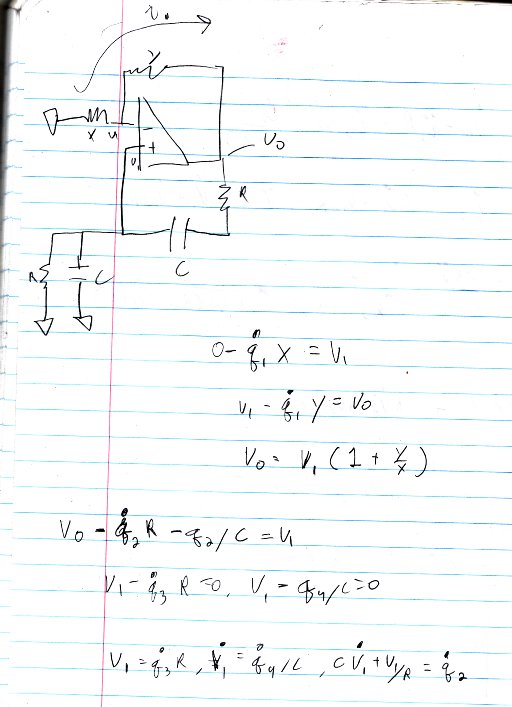 i.
Y
X
V₁
-
+
V₁
V₀
R
C
R
C
0 - q̇₁ X = V₁
V₁ - q̇₁ Y = V₀
V₀ = V₁ (1 + Y/X)
V₀ - q̇₂ R - q₂/C = V₁
V₁ - q̇₃ R = 0, V₁ - q₄/C = 0
V₁ = q̇₃ R, V̇₁ = q̇₄/C, C V̇₁ + V₁/R = q̇₂